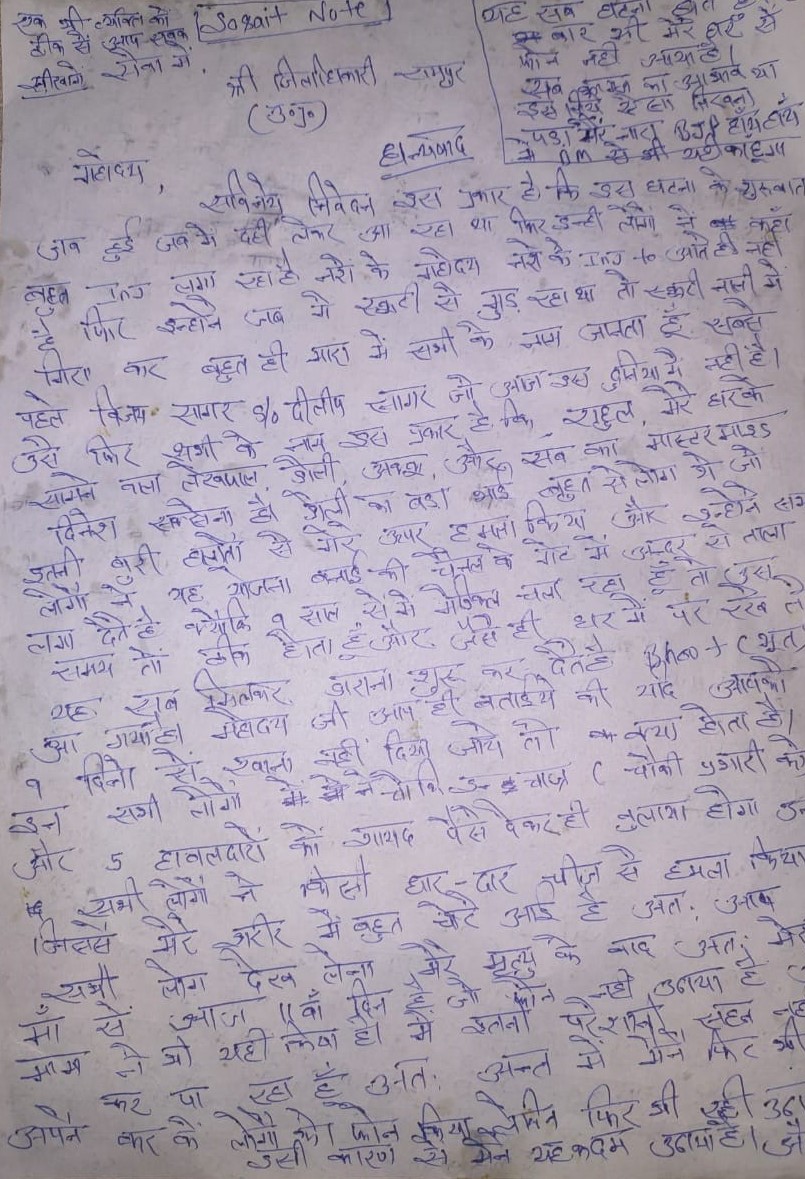 एक भी व्यक्ति को
ठीक से आप सबक
सीखायेगे रोना मं.
Sosait Note
यह सब घटना होने
कार भी मेरे घर से
फोन नही आया है।
सब कागज का अभाव था
इस लिये ऐसा लिखना
पडा मेरे नारा
में DM से भी यही कहूगा
श्री जिलाधिकारी रामपुर
(यु०पु०)
धन्यवाद
महोदय,
सविनय निवेदन इस प्रकार है, कि इस घटना के शुरूवात
जब हुई जब मे दही लेकर आ रहा था फिर इन्ही लोगों ने कहाँ
बहुत Inj लगा रहा है नशे के महोदय नशे के Inj to आते ही नही
है फिर इन्होने जब मे स्कूटी से मुड रहा था तो स्कूटी नाली में
गिरा कर बहुत ही मारा में सभी के नाम जानता हूँ सबसे
पहले विजय सागर s/o दीलीप सागर जो आज इस दुनिया में नही है।
उसे फिर सभी के नाम इस प्रकार है, कि राहुल, मेरे घर के
सामने वाला लेखपाल, शैली, अक्श, और सब का मास्टर माइड
दिनेश सक्सेना है। शैली का बडा भाई बहुत से लोग थे जो
इतनी बुरी हालतों से मेरे ऊपर हमला किया और इन्होने
लोगों ने यह योजना बनाई की चैनल के गेट में अन्दर से ताला
लगा देते है क्योकि 9 साल से मे मेडिकल चला रहा हूँ तो उस
समय तो ठीक होता हूँ और जैसे ही घर में पैर रखे तो
यह सब मिलकर डराना शुरू कर देते है Bhoot (भूत)
आ गया है। महोदय जी आप ही बताईये की यदि आपको
9 दिनो से खाना नही दिया जाये तो क्या होता है।
इन सभी लोगों ने चौकि इन्चाज (चौकी प्रभारी को
और 5 हावलदारो को शायद पैसे देकर ही बुलाया होगा
सभी लोगों ने किसी धार-दार चीज से हमला किया
जिससे मेरे शरीर में बहुत चोटे आई है अत: आप
सभी लोग देख लेना मेरे मृत्यु के बाद अत: मेरे
माँ से आज 11वाँ दिन है जो फोन नही उठाया है
मामा ने भी यही किया है। में इतनी परेशानी सहन नही
कर पा रहा हूँ अत: अन्त में मेने फिर भी
अपने कर के लोगो को फोन किया लेकिन फिर भी नही उठा
उसी कारण से मेने यह कदम उठाया है।